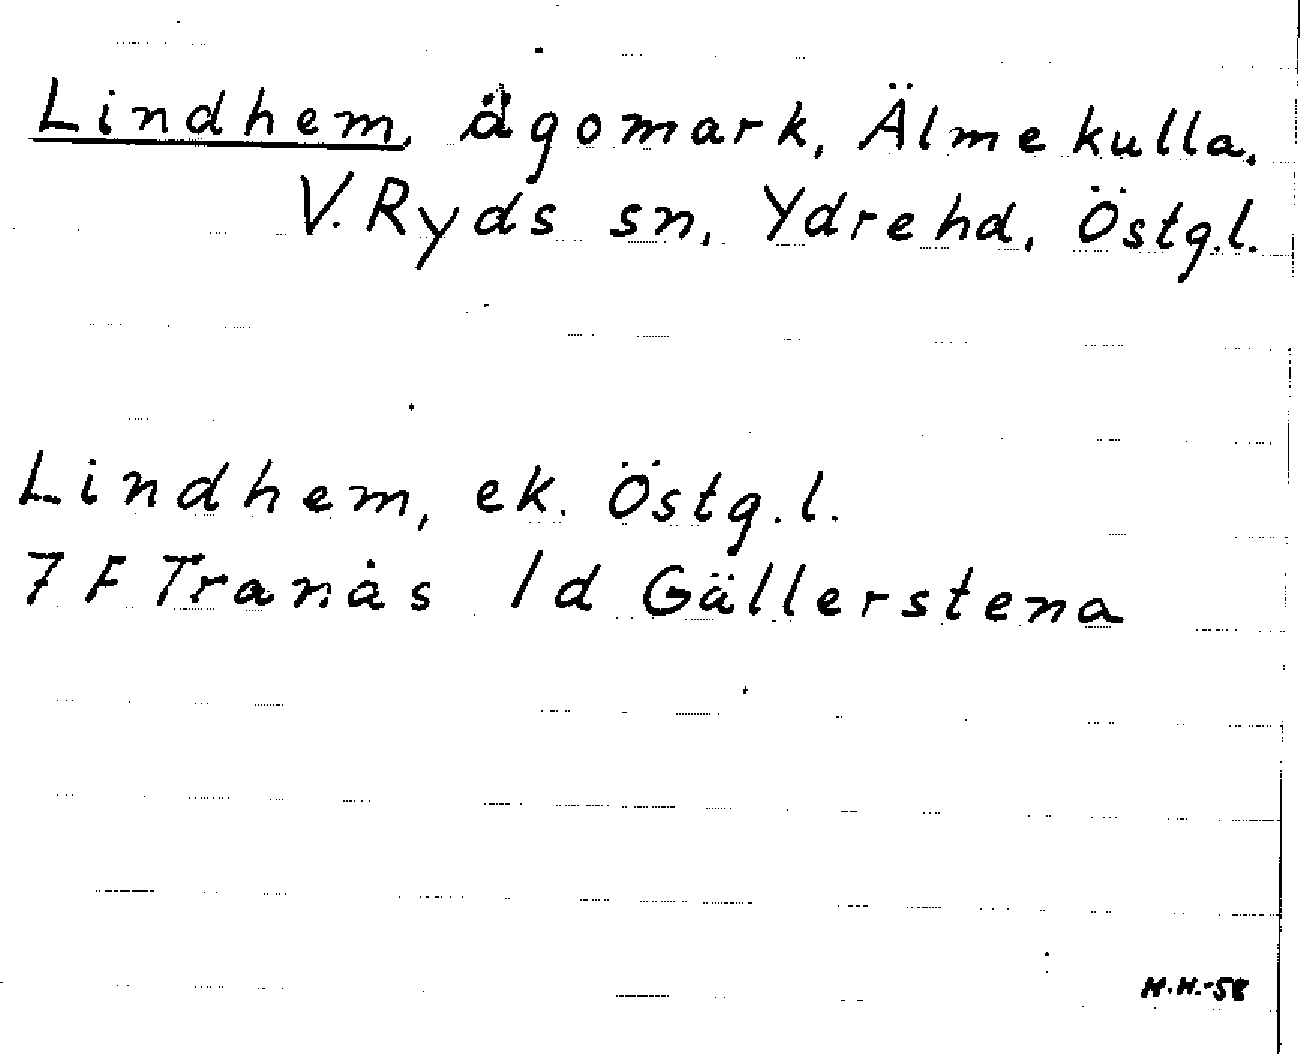 Lindhem, ägomark, Älmekulla,
V. Ryds sn, Ydrehd, Östg.l.
Lindhem, ek. Östg.l.
7 F Tranås 1d Gällerstena
H.H.-58